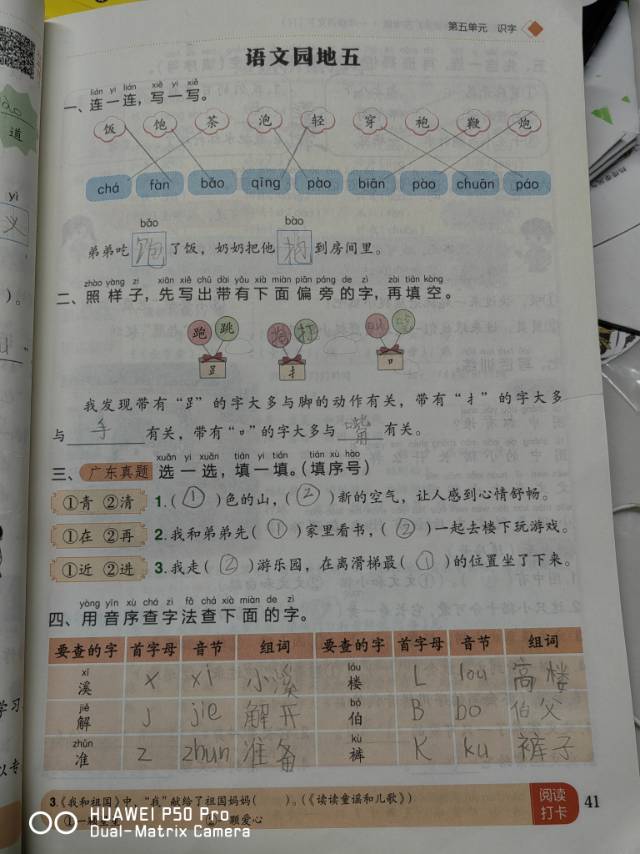 第五单元 识字
语文园地五
lián yi lián xiě yi xiě
一、连一连，写一写。
饭 饱 茶 泡 轻 穿 袍 鞭 炮
chá fàn bǎo qīng pào biān pào chuān páo
bǎo bào
弟弟吃饱了饭，奶奶把他抱到房间里。
zhào yàng zi xiān xiě chū dài yǒu xià miàn piān páng de zì zài tián kòng
二、照样子，先写出带有下面偏旁的字，再填空。
跑 跳 抱 打 叫
⻊ 扌 口
我发现带有“⻊”的字大多与脚的动作有关，带有“扌”的字大多
与手有关，带有“口”的字大多与嘴有关。
xuǎn yi xuǎn tián yi tián tián xù hào
三、广东真题 选一选，填一填。（填序号）
①青 ②清 1.（①）色的山，（②）新的空气，让人感到心情舒畅。
①在 ②再 2.我和弟弟先（①）家里看书，（②）一起去楼下玩游戏。
①近 ②进 3.我走（②）游乐园，在离滑梯最（①）的位置坐了下来。
yòng yīn xù chá zì fǎ chá xià miàn de zì
四、用音序查字法查下面的字。
要查的字 首字母 音节 组词 要查的字 首字母 音节 组词
xī lóu
溪 X xi 小溪 楼 L lou 高楼
jiě bó
解 J jie 解开 伯 B bo 伯父
zhǔn kù
准 Z zhun 准备 裤 K ku 裤子
3.《我和祖国》中，“我”献给了祖国妈妈（ ）。（《读读童谣和儿歌》）
颗爱心
阅读
打卡
41
HUAWEI P50 Pro
Dual-Matrix Camera
道
yì
义
学习
以专